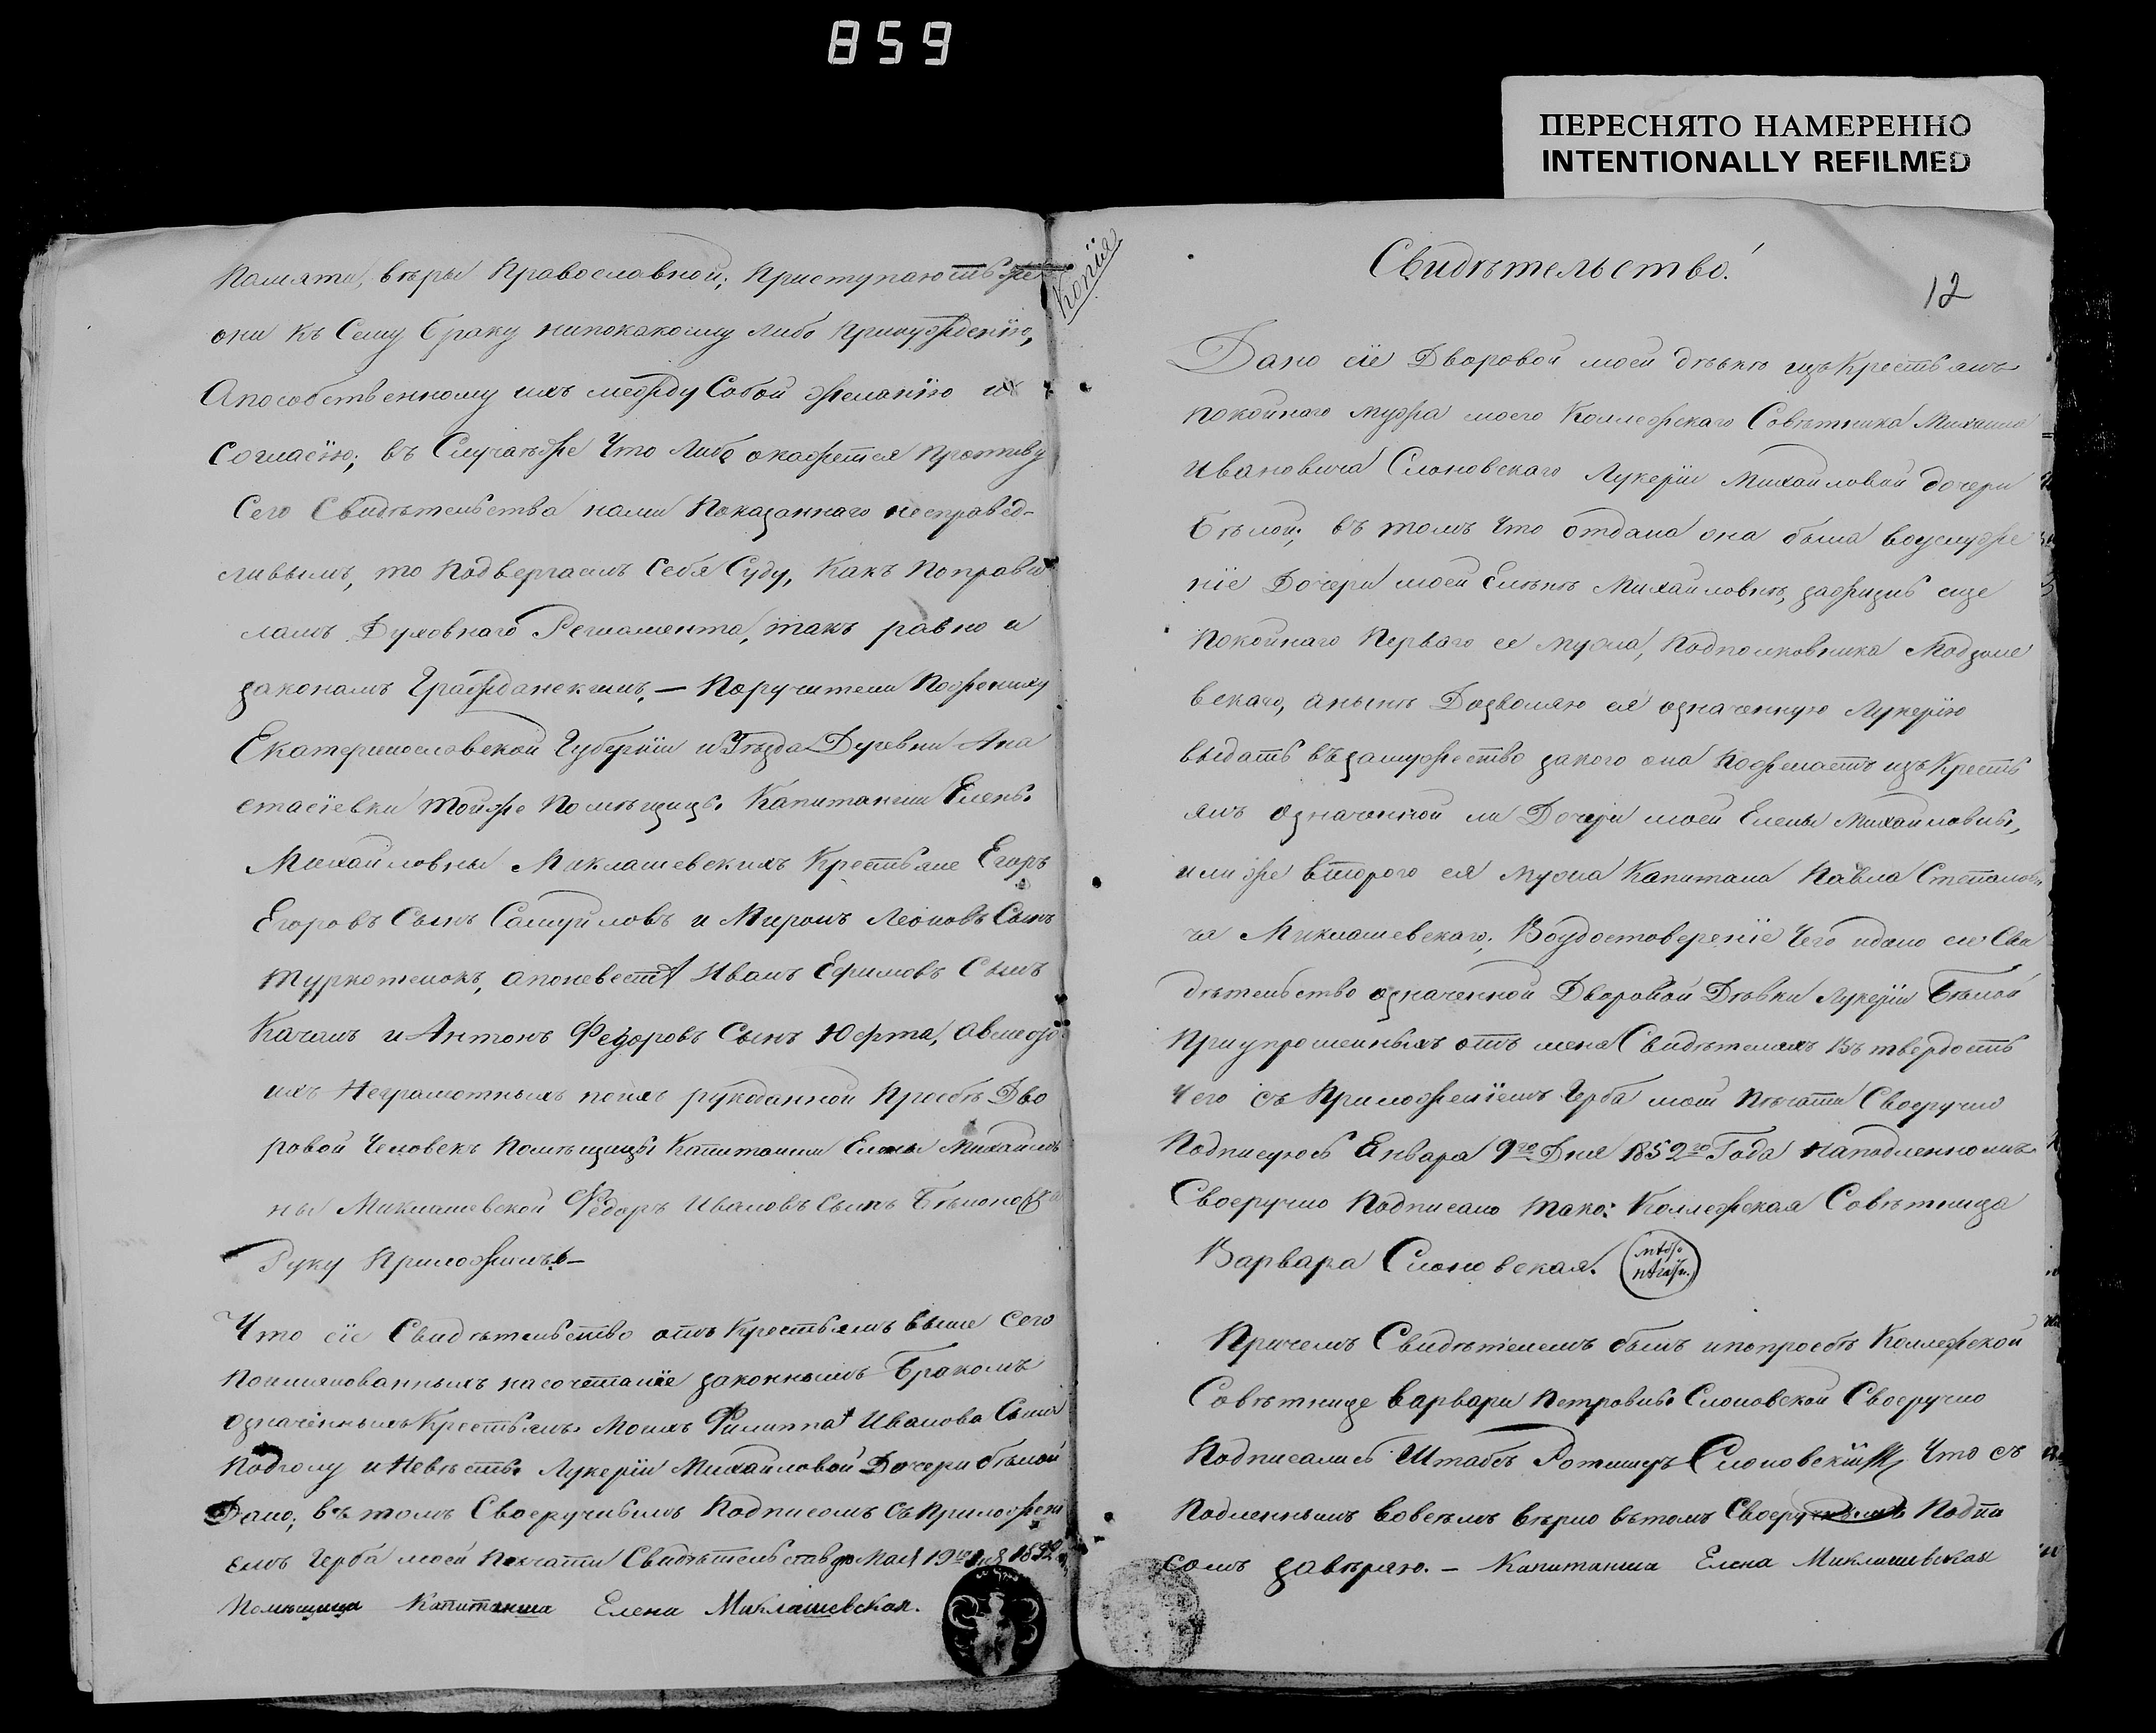 859
ПЕРЕСНЯТО НАМЕРЕННО
INTENTIONALLY REFILMED
Памяти, вѣры Православной; Приступаютъ же
они къ Сему Браку нипокакому либо Принуждѣнію,
Апособственному ихъ между Собой Желанію и
Согласію; въ Случаѣже Что Либо окажется Противу
Сего Свидѣтельства нами Показаннаго несправед-
ливымъ, то Подвергаемъ Себя Суду, Какъ Поправи
ламъ Духовнаго Регламента, такъ равно и
законамъ Гражданскимъ. — Поручители Поженику
Екатеринославской Губерніи иУѣзда Деревни Ана
стасіевки тойже Помѣщицы Капитанши Елены
Михайловны Миклашевскихъ Крестьяне Егоръ
Егоровъ Сынъ Самуйловъ и Миронъ Леоновъ Сынъ
Туркотенокъ, апоневестѣ Иванъ Ефимовъ Сынъ
Качанъ и Антонъ Федоровъ Сынъ Юфта, авместо
ихъ Неграмотныхъ поихъ рукоданной Просбѣ Дво
ровой Человекъ Помѣщицы Капитанши Елены Михайлов
ны Миклашевской Федоръ Ивановъ Сынъ
Руку Приложилъ. —
Что сіе Свидѣтельство отъ Крестьянъ выше сего
Поимянованныхъ насочетаніе законнымъ Бракомъ
Означенныхъ Крестьянъ Моихъ Филиппа Иванова Сына
и Невѣсты Лукеріи Михайловой Дочери бѣлой
Дано, въ томъ Своеручнымъ Подписомъ Съ Приложені
емъ Герба моей Печати Свидѣтельствую Мая 19го 1852
Помѣщица Капитанша Елена Миклашевская.
Копія
Свидѣтельство!
12
Дано сіе Дворовой моей дѣвкѣ изъ Крестьянъ
покойнаго мужа моего Коллежскаго Совѣтника Михаила
Ивановича Слоновскаго Лукеріи Михайловой дочери
Бѣлой; въ томъ что отдана она была воуслуже
ніе Дочери моей Еленѣ Михайловнѣ, зажизнь еще
Покойнаго Перваго ее мужа, Подполковника Мадзоле
вскаго, анынѣ Дозволяю ея означенную Лукерію
выдать въ замужество закого она Пожелаетъ изъ Кресть
янъ означенной ли Дочери моей Елены Михайловны,
или же втораго ея мужа Капитана Павла Степанови
ча Миклашевскаго; Воудостовереніе Чего идано сіе Сви
дѣтельство означенной Дворовой Дѣвки Лукеріи Бѣлой
Приупрошенныхъ отъ меня Свидѣтеляхъ Въ твердость
Чего съ Приложеніемъ Герба моей Печати Своеручно
Подписуюсь Января 9го Дня 1852го Года Наподленномъ
Своеручно Подписано тако: Коллежская Совѣтница
Варвара Слоновская. (мѣсто печати.)
Причемъ Свидѣтелемъ былъ ипопросбѣ Коллежской
Совѣтнице Варвары Петровны Слоновской Своеручно
Подписались Штабъ Ротмистръ Слоновскій Что съ
Подленнымъ вовсемъ вѣрно вътомъ Своеручнымъ Подпи
сомъ завѣряю. — Капитанша Елена Миклашевская